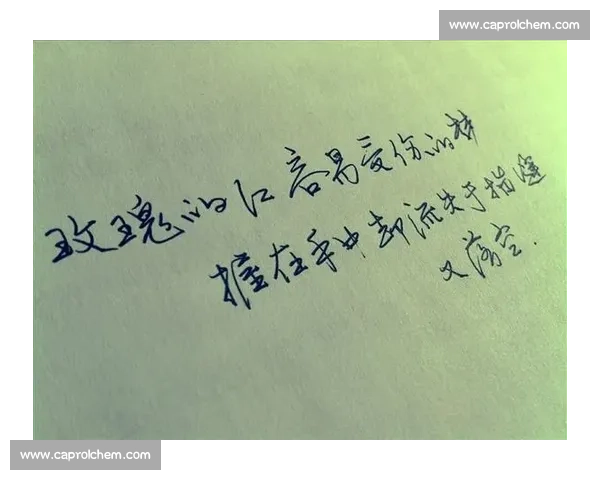 www.caprolchem.com
玫瑰的红 容易受伤的梦
握在手中却流失于指缝
又落空.
www.caprolchem.com